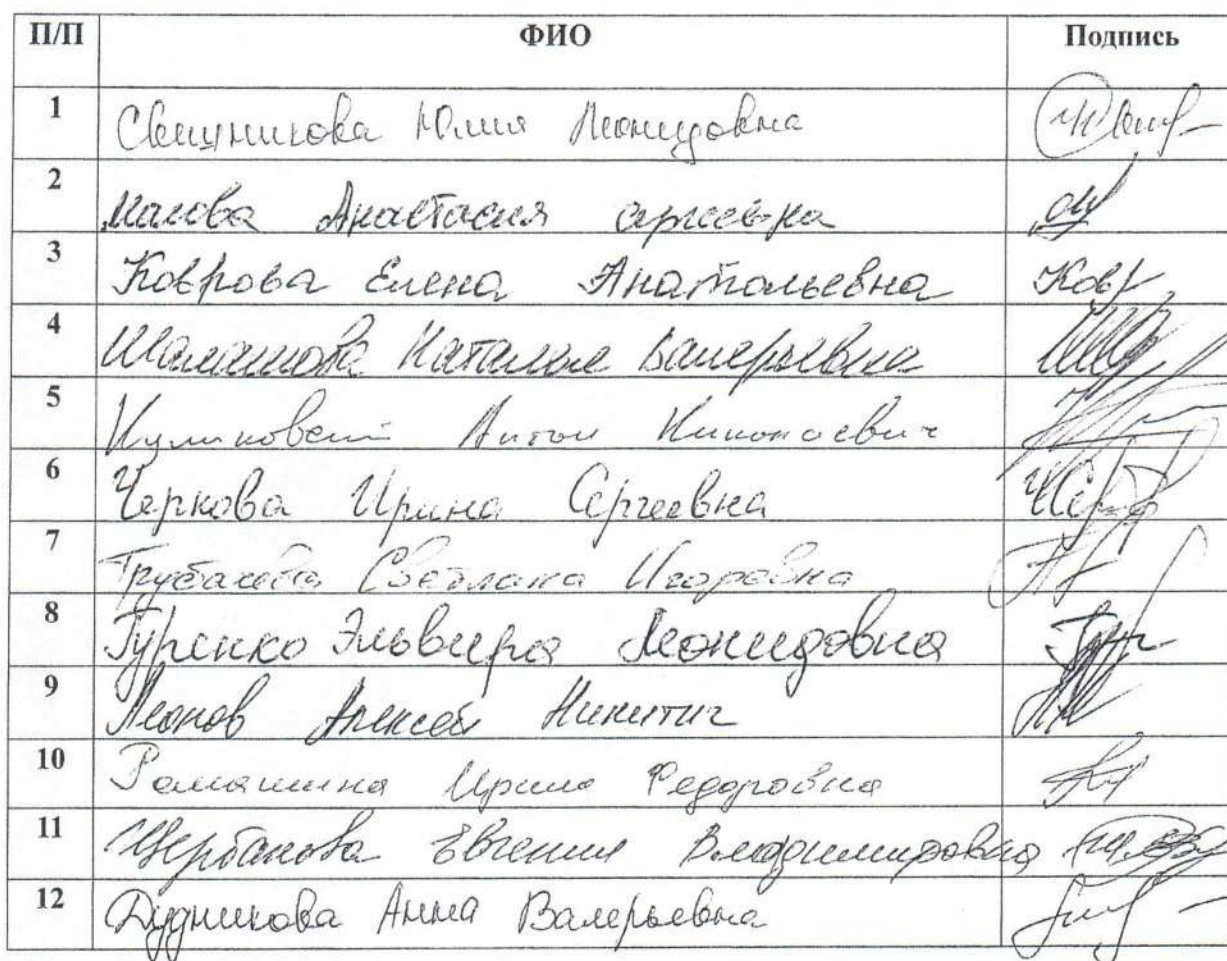 П/П ФИО Подпись
1 Свешникова Юлия Леонидовна
2 Анастасия сергеевна
3 Коврова Елена Анатольевна Ковр
4 Шалашова Наталья Валерьевна
5 Куликовский Антон Николаевич
6 Черкова Ирина Сергеевна
7 Трубачева Светлана Игоревна
8 Гуренко Эльвира Леонидовна
9 Леонов Алексей Никитич
10 Ромашина Ирина Федоровна
11 Щербакова Евгения Владимировна
12 Дудникова Анна Валерьевна